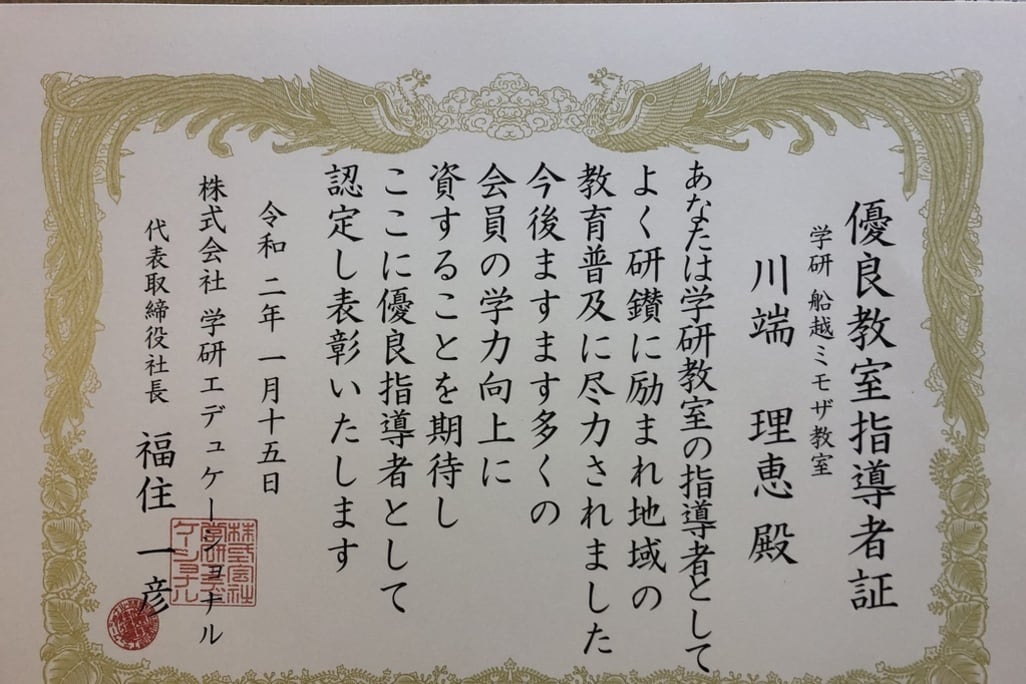 優良教室指導者証
学研 船越ミモザ教室
川端 理恵 殿
あなたは学研教室の指導者として
よく研鑚に励まれ地域の
教育普及に尽力されました
今後ますます多くの
会員の学力向上に
資することを期待し
ここに優良指導者として
認定し表彰いたします
令和二年一月十五日
株式会社 学研エデュケーショナル
代表取締役社長 福住 一彦
株式会社
学研エデュ
ケーショナル